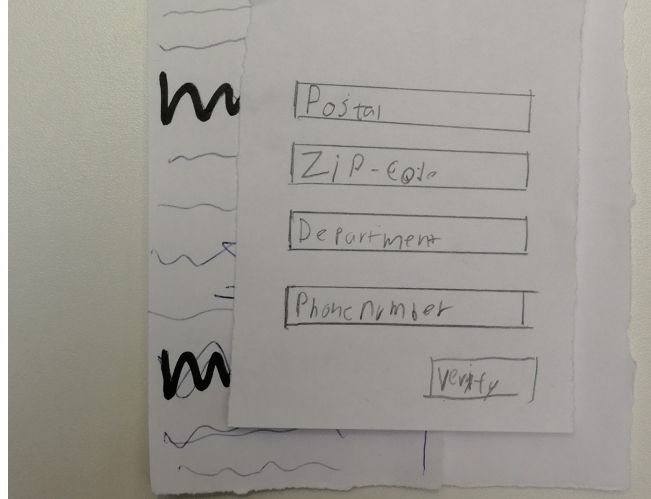 Postal
ZiP-Code
Department
Phone number
Verify